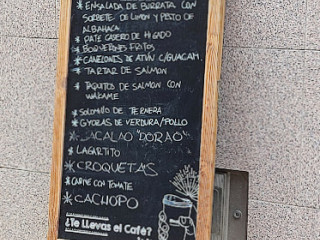 * ENSALADA DE BURRATA CON
SORBETE DE LIMON Y PESTO DE
ALBAHACA
* PATE CASERO DE HIGADO
* BOQUERONES FRITOS
* CANELONES DE ATUN C/GUACAM.
* TARTAR DE SALMON
* TAQUITOS DE SALMON CON
WAKAME
* SOLOMILLO DE TERNERA
* GYOZAS DE VERDURA/POLLO
* BACALAO "DORAO"
* LAGARTITO
* CROQUETAS
* CARNE CON TOMATE
* CACHOPO
¿Te Llevas el Café?